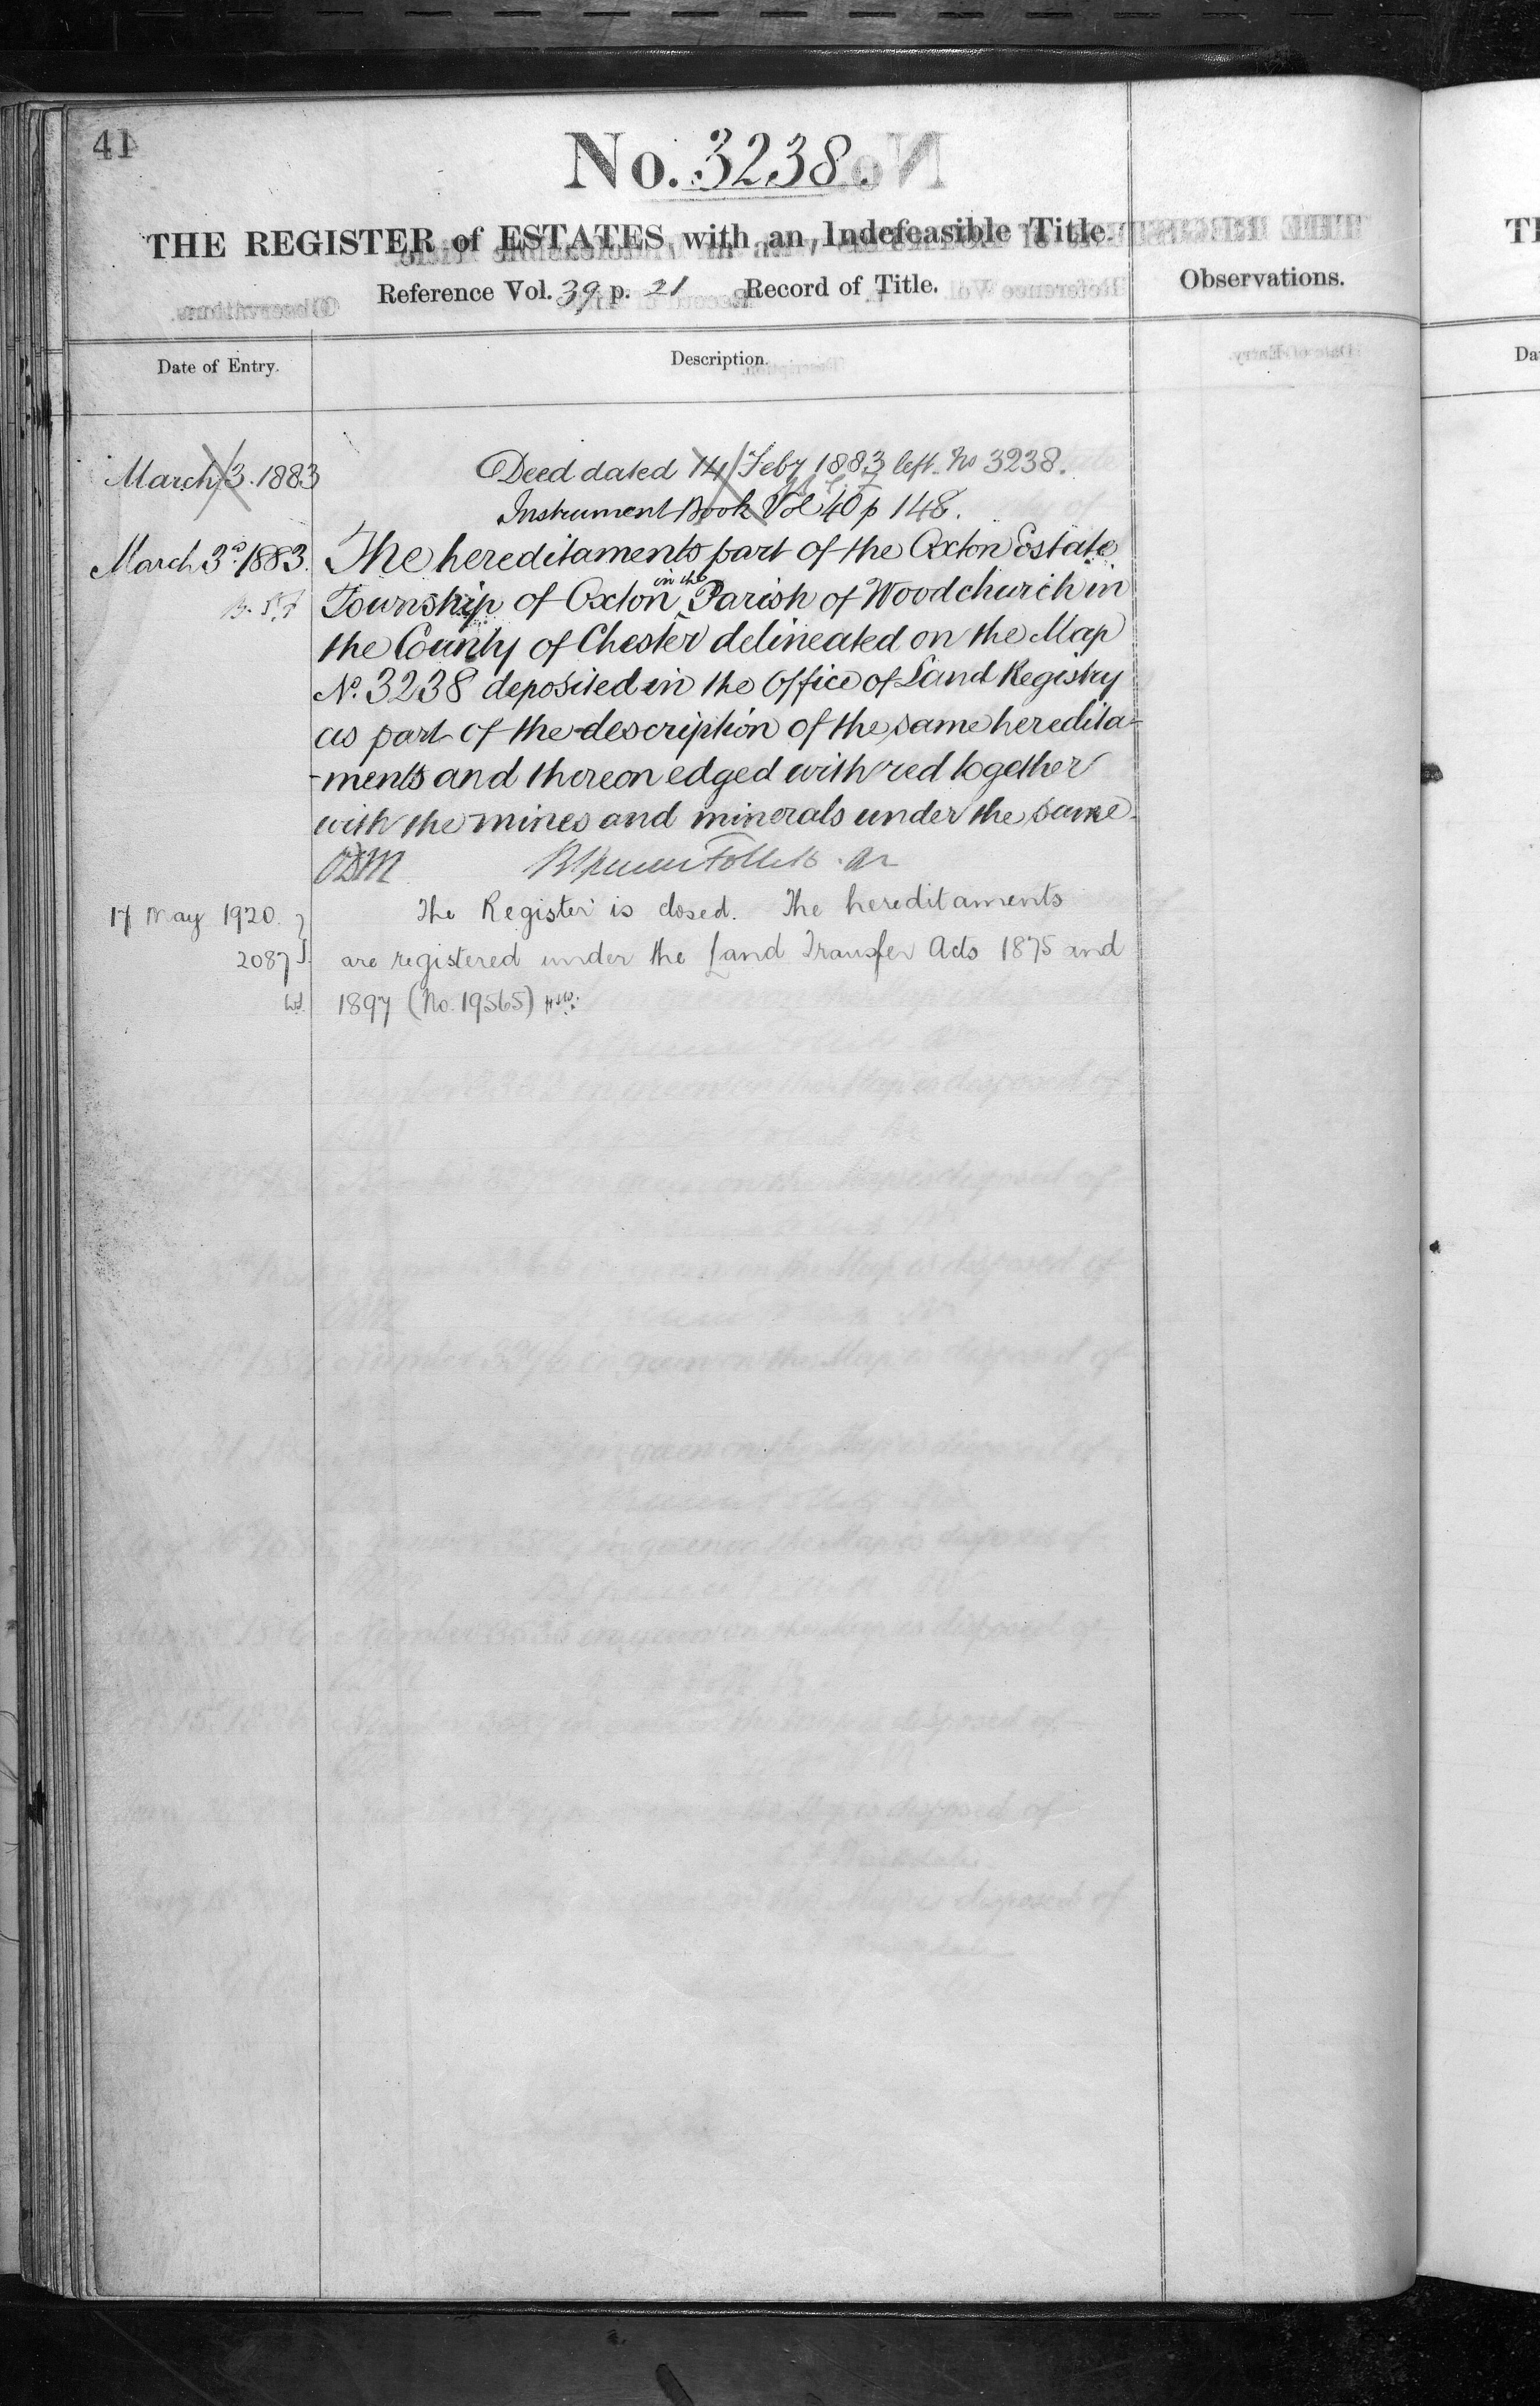 41
No. 3238.
THE REGISTER of ESTATES with an Indefeasible Title.
Reference Vol. 39 p. 21 Record of Title.
Observations.
Date of Entry.
Description.
March 3. 1883
Deed dated 14 Feby 1883 left No 3238.
Instrument Book Vol 40 p 148.
March 3d 1883.
The hereditaments part of the Oxton Estate
B. S. F
Township of Oxton in the Parish of Woodchurch in
the County of Chester delineated on the Map
No. 3238 deposited in the Office of Land Registry
as part of the description of the same heredita-
-ments and thereon edged with red together
with the mines and minerals under the same.
17 May 1920.
The Register is closed. The hereditaments
2087
are registered under the Land Transfer Acts 1875 and
1897 (No. 19565)